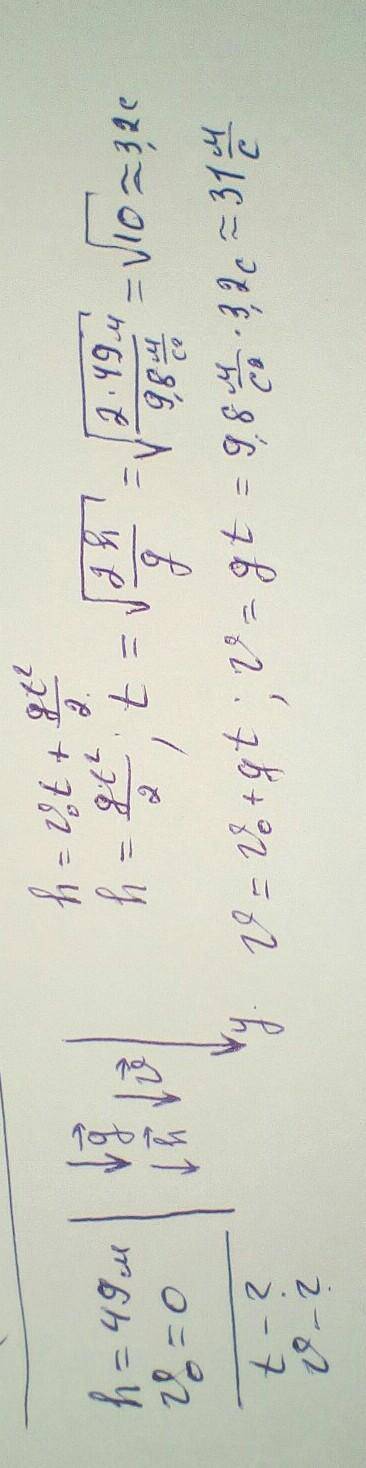 h = 49 м
v₀ = 0
t - ?
v - ?
g
h
v
y
h = v₀t + gt²/2
h = gt²/2 ; t = √(2h/g) = √(2·49 м / 9,8 м/с²) = √10 ≈ 3,2 с
v = v₀ + gt ; v = gt = 9,8 м/с² · 3,2 с ≈ 31 м/с